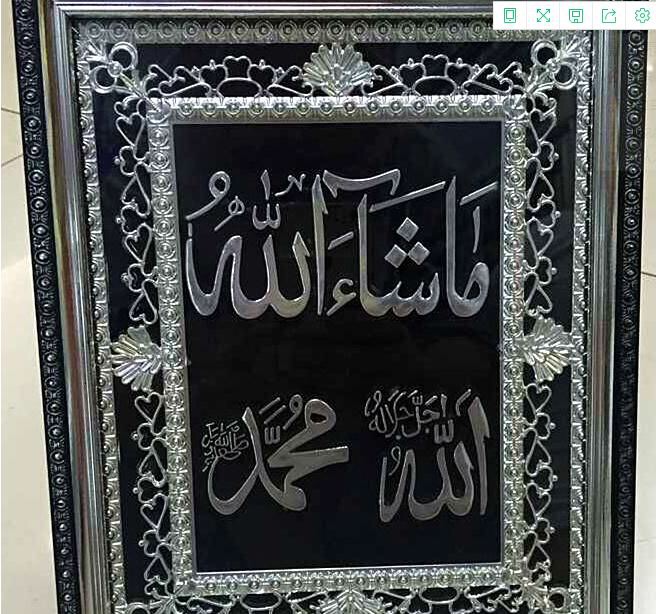 مَا شَاءَ اللّٰهُ
اللّٰهُ جَلَّ جَلَالُهُ
مُحَمَّد ﷺ